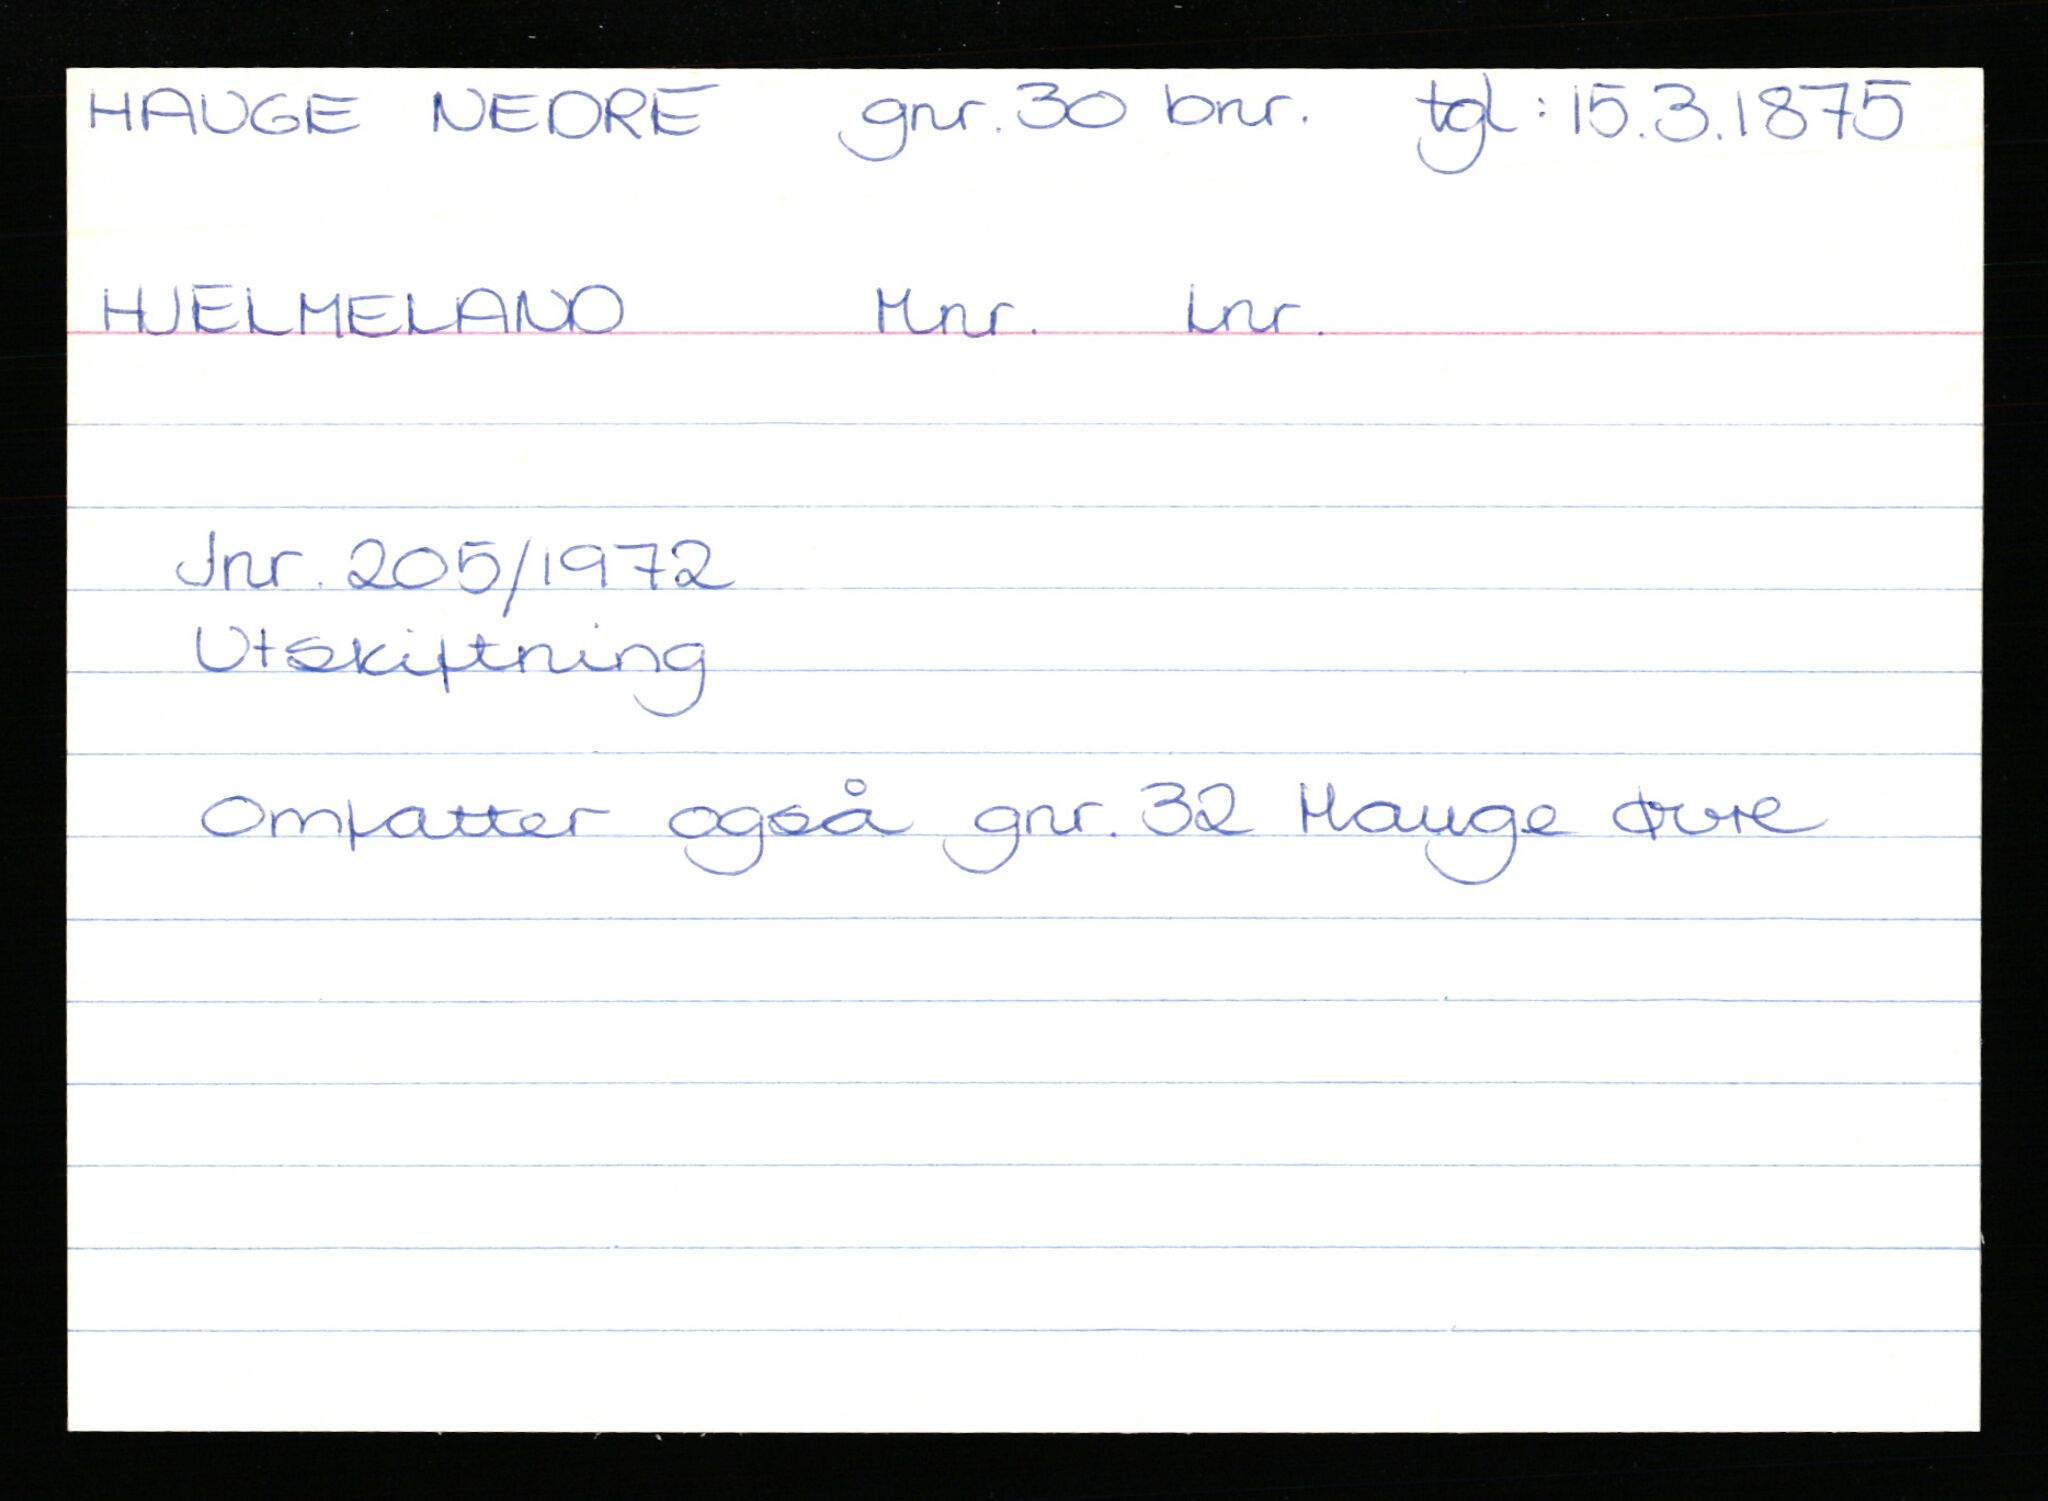 HAUGE NEDRE gnr. 30 bnr. tgl: 15.3.1875
HJELMELAND Mnr. Lnr.
Jnr. 205/1972
Utskiftning
Omfatter også gnr. 32 Hauge øvre